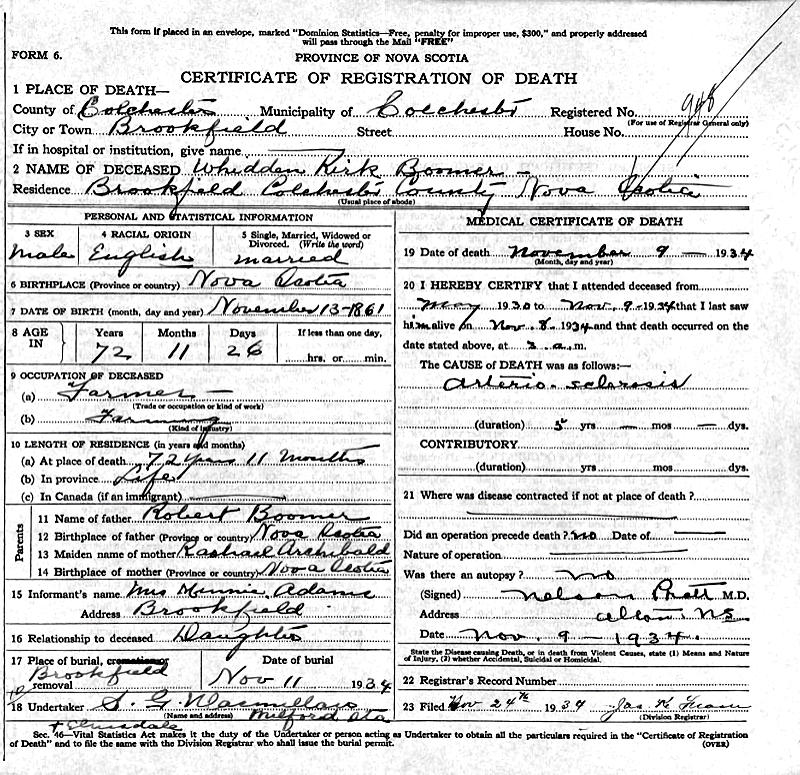 This form if placed in an envelope, marked "Dominion Statistics—Free, penalty for improper use, $300," and properly addressed
will pass through the Mail "FREE"
FORM 6.
PROVINCE OF NOVA SCOTIA
CERTIFICATE OF REGISTRATION OF DEATH
1 PLACE OF DEATH—
County of Colchester Municipality of Colchester Registered No. 948
(For use of Registrar General only)
City or Town Brookfield Street House No.
If in hospital or institution, give name —
2 NAME OF DECEASED Whidden Kirk Boomer —
Residence Brookfield Colchester County Nova Scotia
(Usual place of abode)
PERSONAL AND STATISTICAL INFORMATION
3 SEX 4 RACIAL ORIGIN 5 Single, Married, Widowed or
Divorced. (Write the word)
Male English married
6 BIRTHPLACE (Province or country) Nova Scotia
7 DATE OF BIRTH (month, day and year) November 13-1861
8 AGE IN Years Months Days If less than one day,
72 11 26 hrs. or min.
9 OCCUPATION OF DECEASED
(a) Farmer —
(Trade or occupation or kind of work)
(b) Farming
(Kind of industry)
10 LENGTH OF RESIDENCE (in years and months)
(a) At place of death 72 years 11 Months
(b) In province Life
(c) In Canada (if an immigrant) —
Parents
11 Name of father Robert Boomer
12 Birthplace of father (Province or country) Nova Scotia
13 Maiden name of mother Rachael Archibald
14 Birthplace of mother (Province or country) Nova Scotia
15 Informant's name Mrs Minnie Adams
Address Brookfield
16 Relationship to deceased Daughter
17 Place of burial, cremation or Date of burial
Brookfield
removal Nov 11 1934
18 Undertaker S. G. Macmillan
(Name and address) Milford Sta
MEDICAL CERTIFICATE OF DEATH
19 Date of death November 9 — 1934
(Month, day and year)
20 I HEREBY CERTIFY that I attended deceased from
May 1930 to Nov. 9 - 1934 that I last saw
him alive on Nov. 8. 1934 and that death occurred on
date stated above, at 3 a.m.
The CAUSE of DEATH was as follows:—
Arterio-sclerosis
(duration) 5 yrs — mos — dys.
CONTRIBUTORY
(duration) yrs. mos dys.
21 Where was disease contracted if not at place of death?
—
Did an operation precede death? no Date of —
Nature of operation —
Was there an autopsy? no
(Signed) Nelson Pratt M.D.
Address N.S.
Date Nov. 9 — 1934.
State the Disease causing Death, or in death from Violent Causes, state (1) Means and Nature
of Injury, (2) whether Accidental, Suicidal or Homicidal.
22 Registrar's Record Number
23 Filed Nov 24th 1934 Jas
(Division Registrar)
Sec. 46—Vital Statistics Act makes it the duty of the Undertaker or person acting as Undertaker to obtain all the particulars required in the "Certificate of Registration
of Death" and to file the same with the Division Registrar who shall issue the burial permit. (OVER)